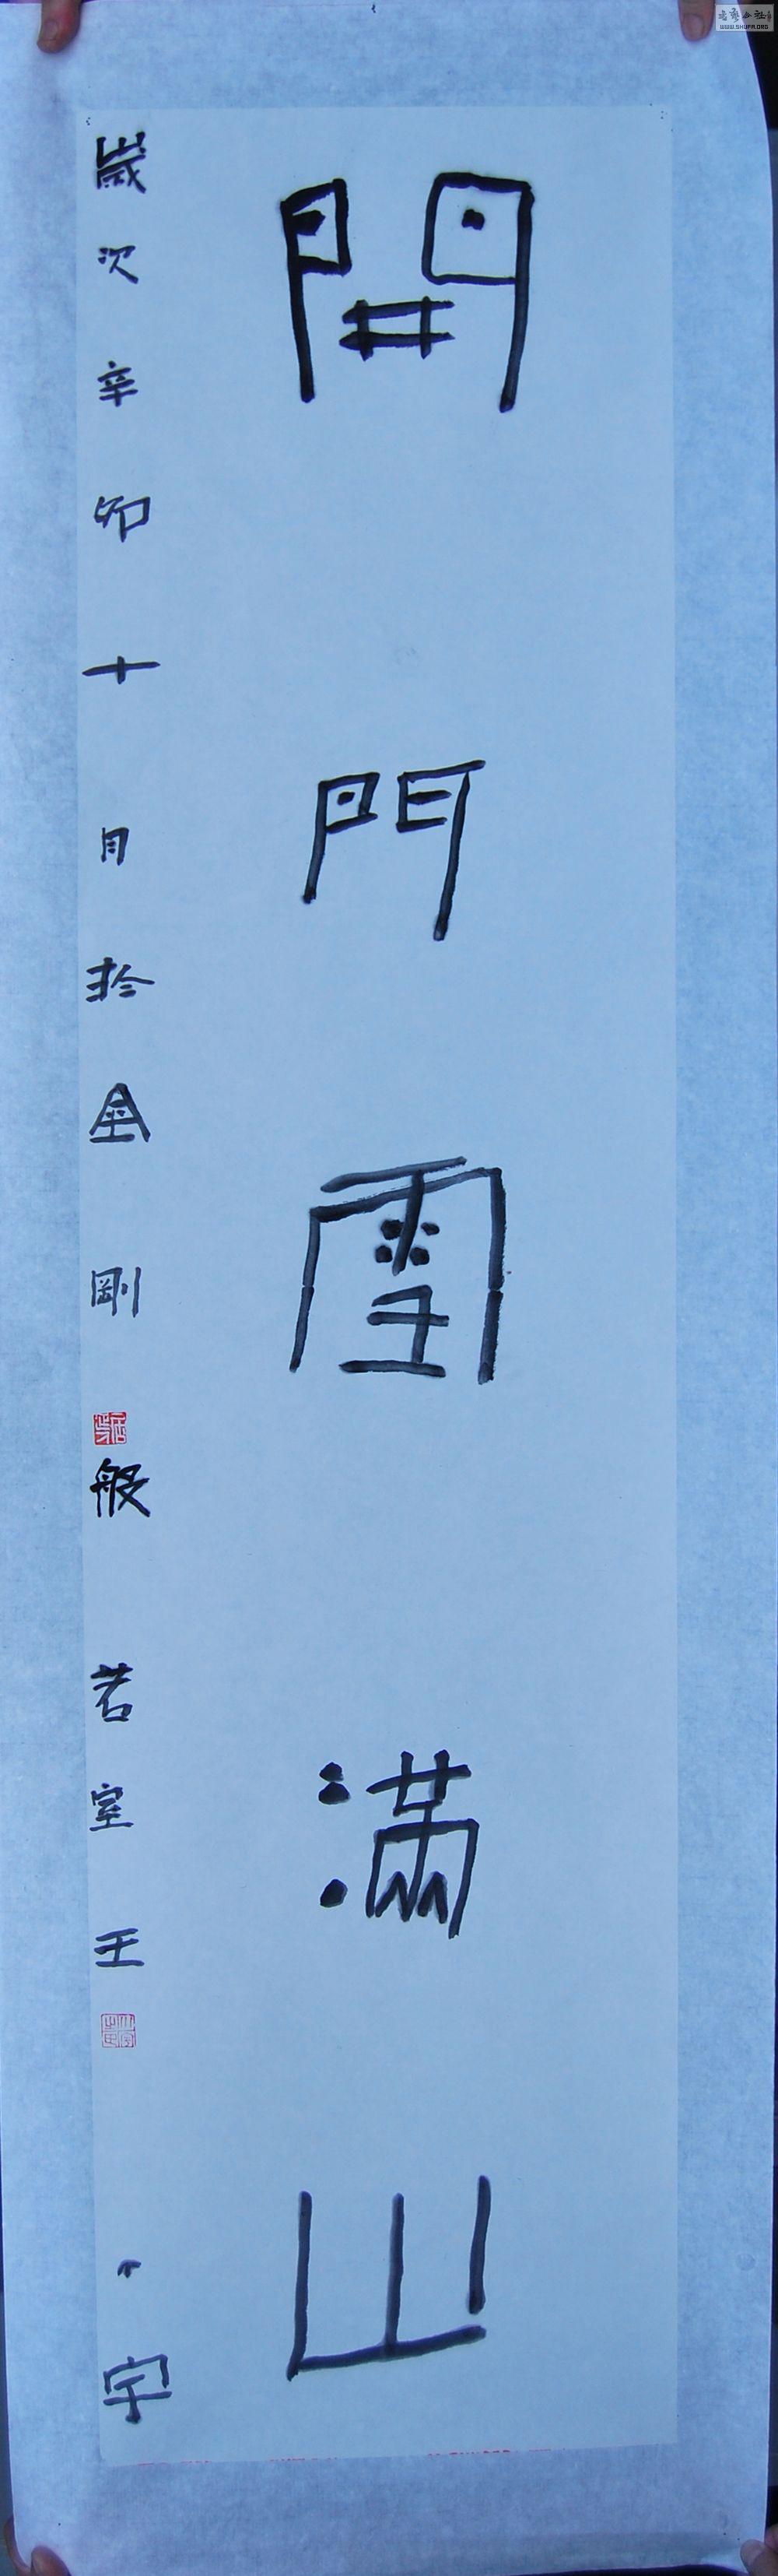 開門雪滿山
歲次辛卯十月於金剛般若室王个宇
WWW.SHUFA.ORG